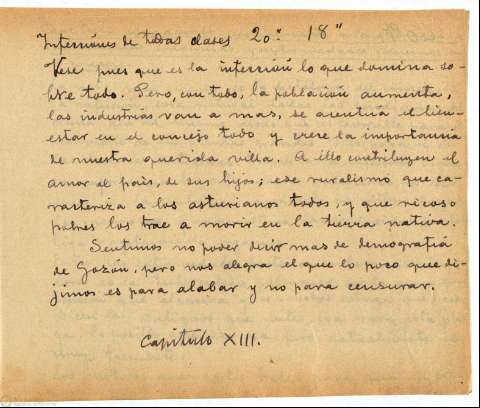 Infecciones de todas clases 20" 18"
Vese pues que es la infección lo que domina so-
bre todo. Pero, con todo, la población aumenta,
las industrias van a mas, se acentúa el bien-
estar en el concejo todo y crece la importancia
de nuestra querida villa. A ello contribuyen el
amor al país, de sus hijos; ese ruralismo que ca-
racteriza a los asturianos todos, y que ricos o
pobres los trae a morir en la tierra nativa.
Sentimos no poder decir mas de demografía
de Gozón, pero nos alegra el que lo poco que di-
jimos es para alabar y no para censurar.
Capítulo XIII.